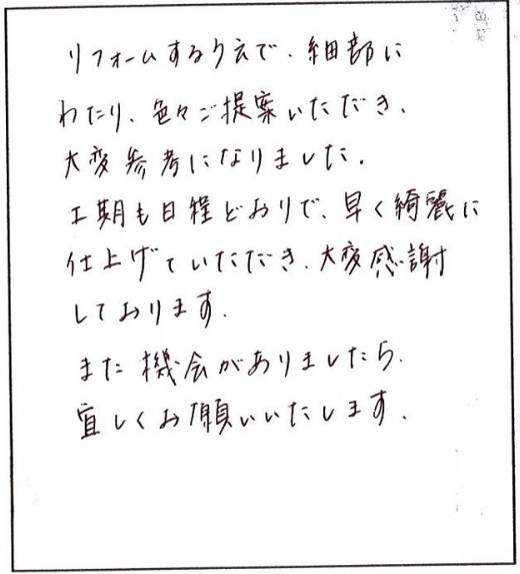 リフォームするうえで、細部に
わたり、色々ご提案いただき、
大変参考になりました。
工期も日程どおりで、早く綺麗に
仕上げていただき、大変感謝
しております。
また機会がありましたら、
宜しくお願いいたします。